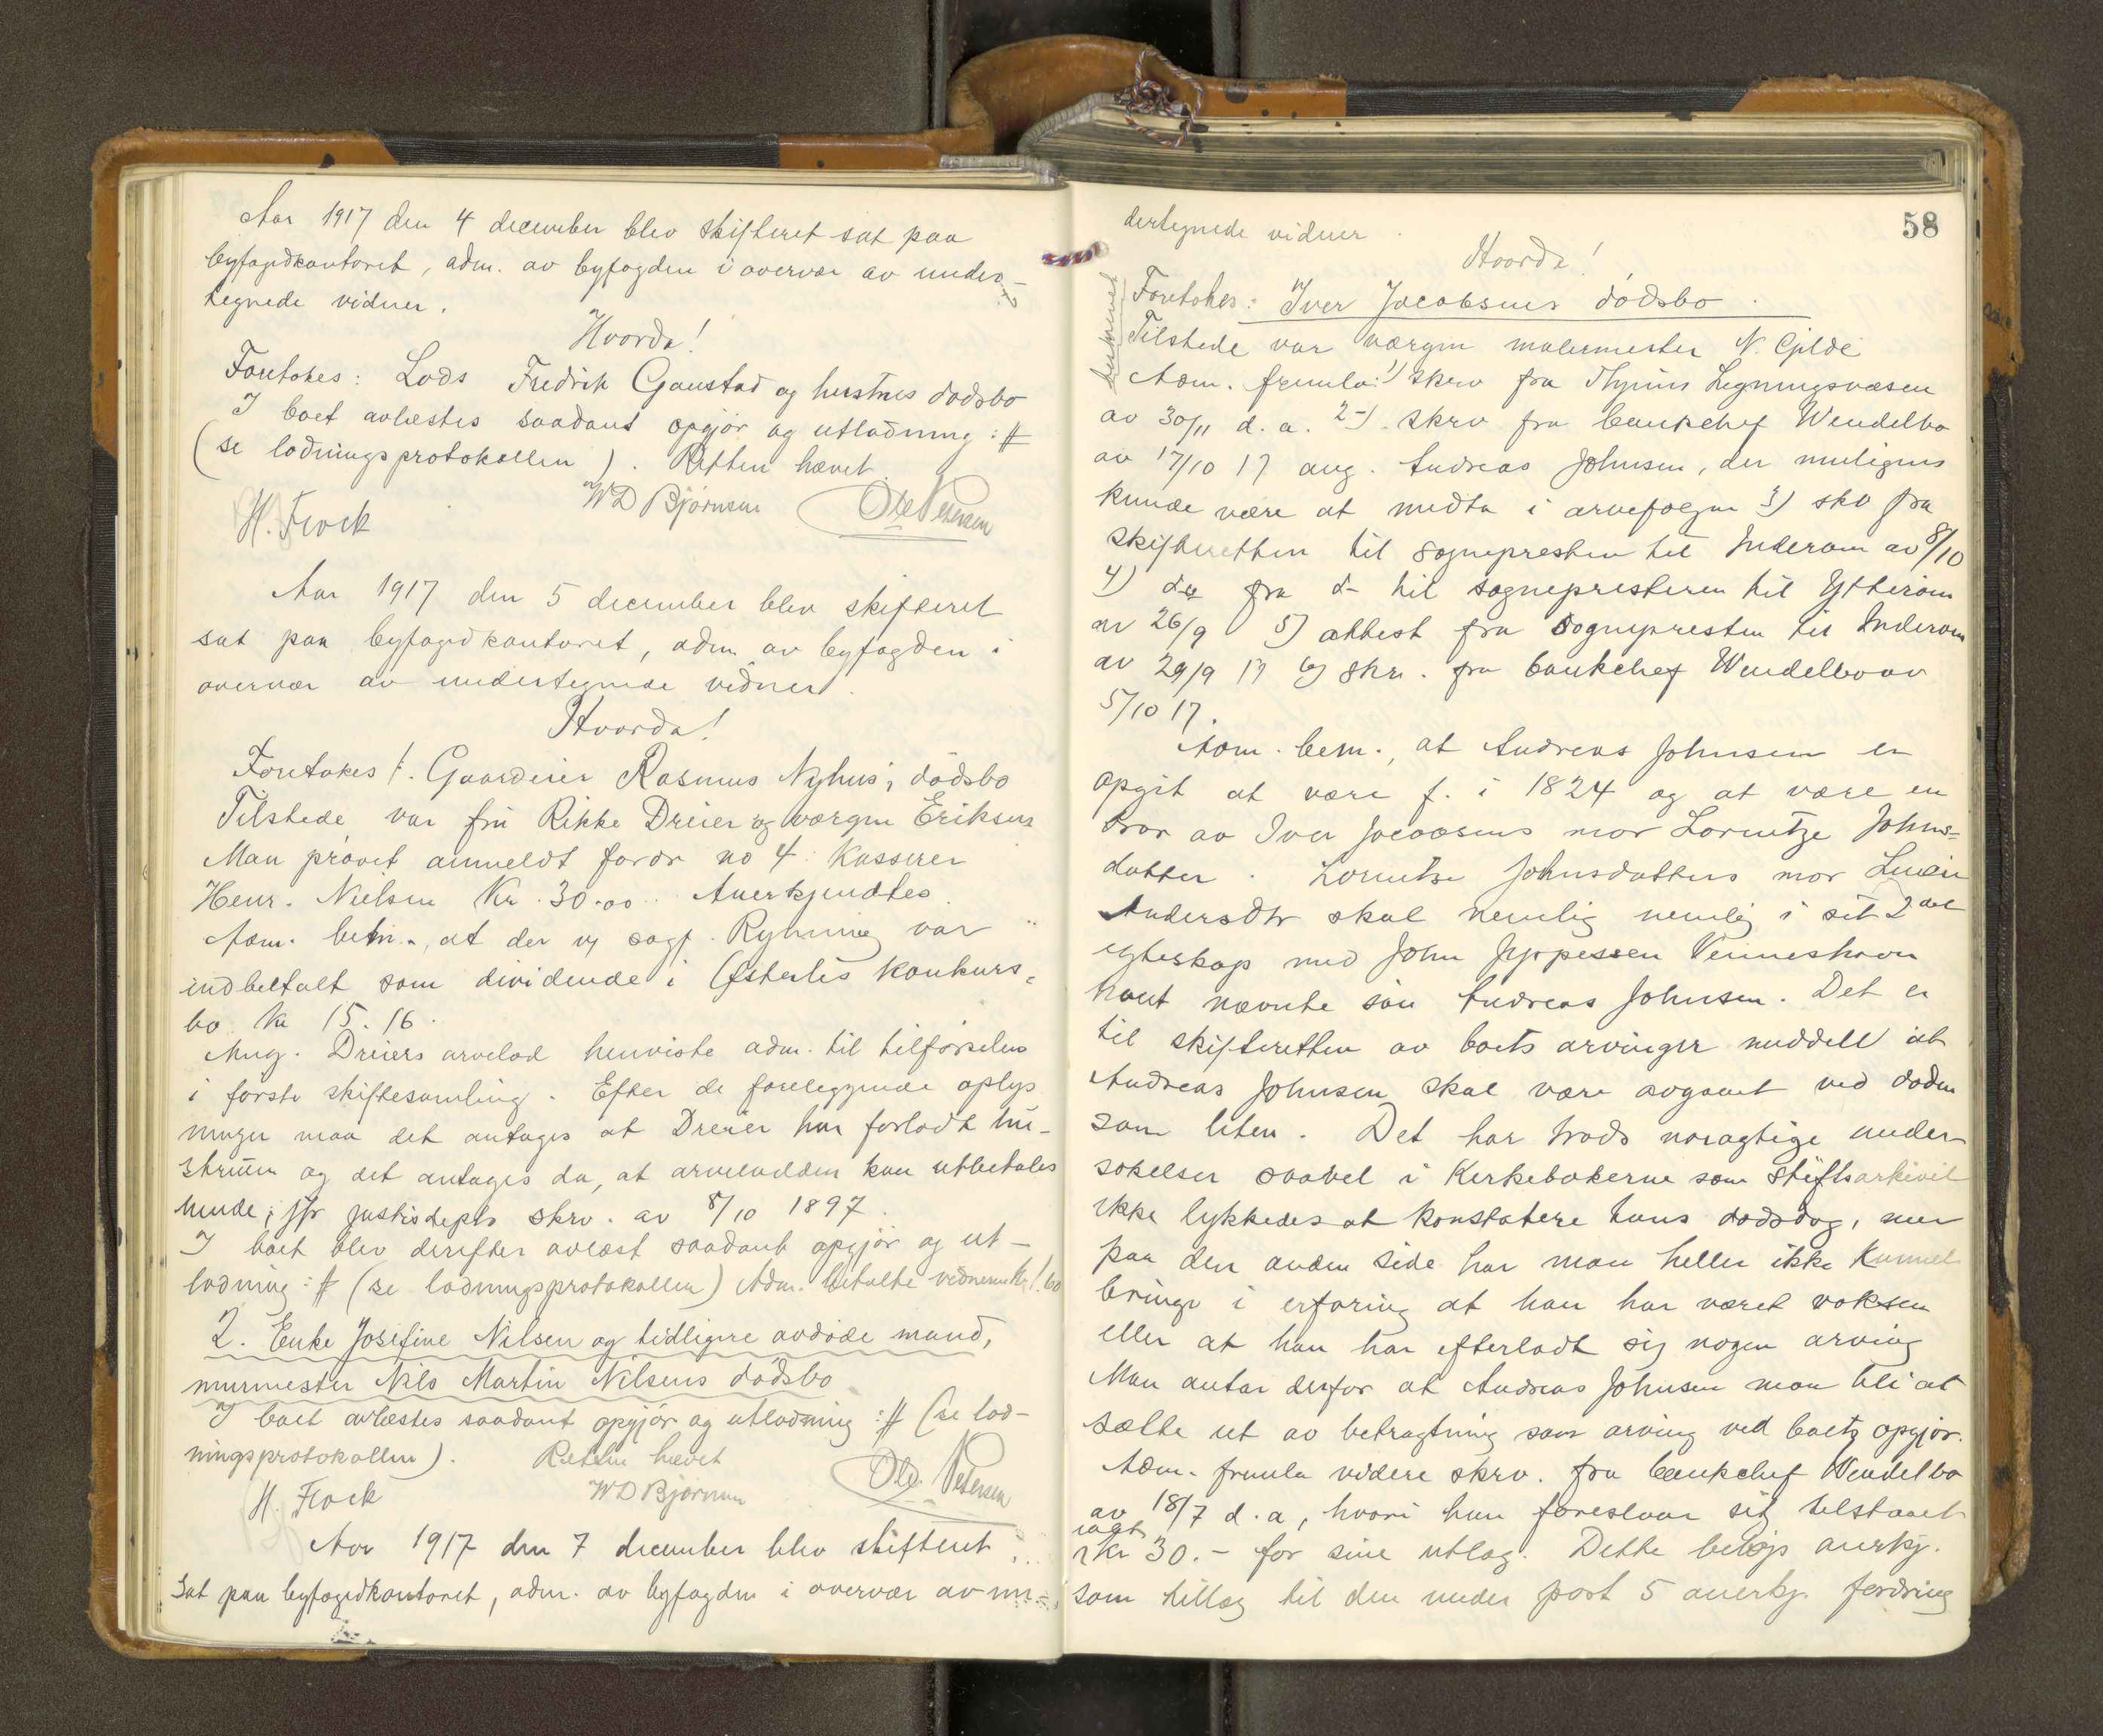 Aar 1917 den 4 december blev skifteret sat paa
byfogdkontoret, adm. av byfogden i overvær av under-
tegnede vidner.
Hvorda!
Foretokes: Lods Fredrik Gaustad og hustrus dødsbo
I boet avlæstes saadant opgjør og utlodning :#
(se lodningsprotokollen). Retten hævet.
H. Flock WD Bjørnsen Ole Petersen
Aar 1917 den 5 december blev skifteret
sat paa byfogdkontoret, adm. av byfogden i
overvær av undertegnede vidner.
Hvorda!
Foretokes 1. Gaardeier Rasmus Nyhus's dødsbo
Tilstede var fru Rikke Dreier og værgen Eriksen
Man prøvet anmeldt fordr no 4: Kasserer
Henr. Nielsen Kr. 30.00. Anerkjendtes.
Adm. bem., at der av sagf. Ryhning var
indbetalt som dividende i Østerlis konkurs-
bo Kr 15.16.
Ang. Dreiers arvelod henviste adm. til tilførselen
i første skiftesamling. Efter de foreliggende oplys
ninger maa det antages at Dreier har forladt hu-
struen og det antages da, at arvelodden kan utbetales
hende, jfr justisdepts skrv. av 8/10 1897.
I boet blev derefter avlæst saadant opgjør og ut-
lodning :# (se lodningsprotokollen) Adm. betalte vidnerne Kr 1.60
2. Enke Josefine Nilsen og tidligere avdøde mand,
murmester Nils Martin Nilsens dødsbo
I boet avlæstes saadant opgjør og utlodning :# (se lod-
ningsprotokollen). Retten hævet
H. Flock WD Bjørnsen Ole Petersen
Aar 1917 den 7 december blev skifteret
sat paa byfogdkontoret, adm. av byfogden i overvær av un-
58
dertegnede vidner.
Hvorda!
Foretokes: Iver Jacobsens dødsbo.
Tilstede var værgen malermester N. Gjelde
Adm. fremla: 1) skrv fra Thyrins Ligningsvæsen
av 30/11 d. a. 2) skrv fra bankchef Wendelbo
av 17/10 17 ang. Andreas Johnsen, der muligens
kunde være at medta i arvefølgen 3) skv fra
skifteretten til sognepresten til Inderøen av 8/10
4) do fra do til sognepresteren til Ytterøen
av 26/9 5) attest fra sognepresten til Inderøen
av 29/9 17 6) skr. fra bankchef Wendelbo av
5/10 17.
Adm. bem., at Andreas Johnsen er
opgit at være f. i 1824 og at være en
bror av Iver Jacobsens mor Lorentze Johns-
datter. Lorentze Johnsdatters mor
Andersdtr skal nemlig nemlig i sit 2det
egteskap med John Jeppessen Venneshavn
havt nævnte søn Andreas Johnsen. Det er
til skifteretten av boets arvinger meddelt at
Andreas Johnsen skal være avgaaet ved døden
som liten. Det har trods nøiagtige under-
søkelser saavel i Kirkebøkerne som stiftsarkivet
ikke lykkedes at konstatere hans dødsdag, men
paa den anden side har man heller ikke kunnet
bringe i erfaring at han har været voksen
eller at han har efterladt sig nogen arving
Man antar derfor at Andreas Johnsen maa bli at
sætte ut av betragtning som arving ved boets opgjør.
Adm. fremla videre skrv. fra bankchef Wendelbo
av 18/7 d. a, hvori han foreslaar sig tilstaaet
ialt
kr 30.- for sine utlæg. Dette beløp anerkj.
som tillæg til den under post 5 anerkj. fordring